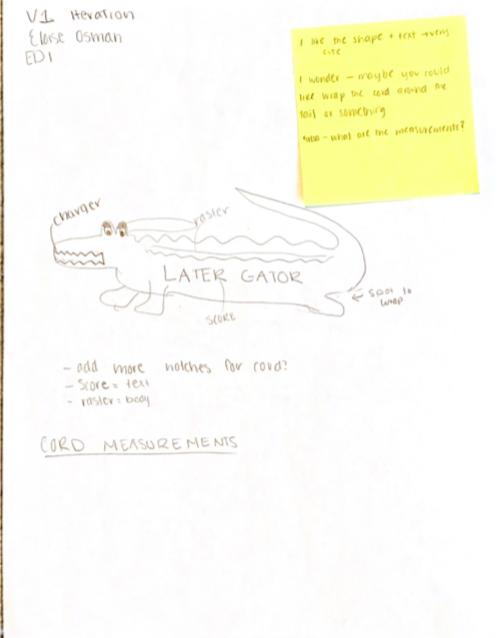 V1 Iteration
Eloise Osman
ED1
I like the shape + text → very
cute
I wonder - maybe you could
like wrap the cord around the
tail or something
also - what are the measurements?
charger
raster
LATER GATOR
SCORE
← spot to
wrap
- add more notches for cord?
- Score = text
- raster = body
CORD MEASUREMENTS